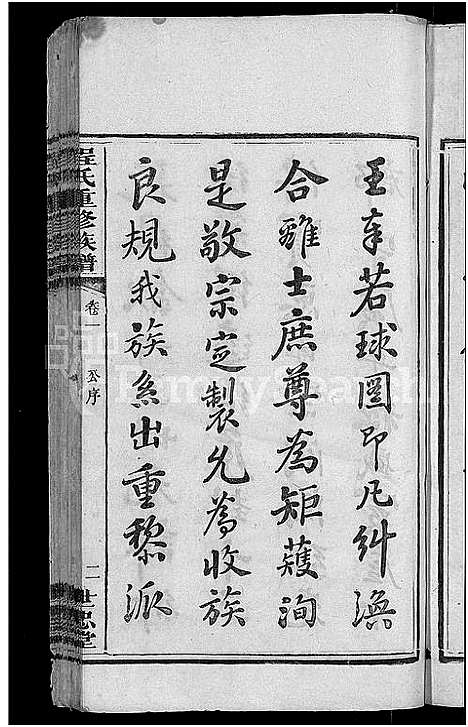 王奉若球圖即凡糾渙
合雖士庶尊為矩蒦洵
是敬宗定製允為收族
良規我族系出重黎派
程氏重修族譜
卷一
公序
二
世忠堂
FamilySearch